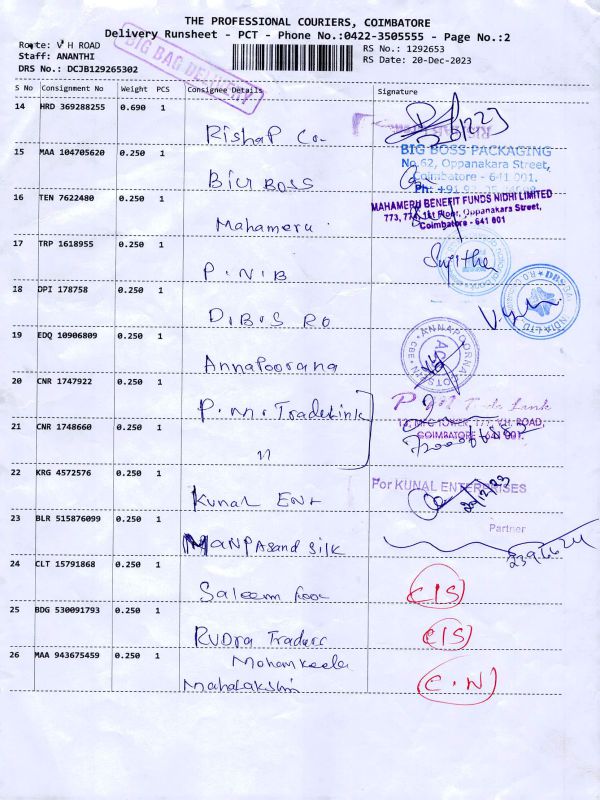 THE PROFESSIONAL COURIERS, COIMBATORE
Delivery Runsheet - PCT - Phone No.:0422-3505555 - Page No.:2
Route: V H ROAD
Staff: ANANTHI
DRS No.: DCJB129265302
BIG BAG DELIVERY
RS No.: 1292653
RS Date: 20-Dec-2023
S No Consignment No Weight PCS Consignee Details Signature
14 HRD 369288255 0.690 1
Rishap Co.
15 MAA 104705620 0.250 1
BIG BOSS PACKAGING
No.62, Oppanakara Street,
Coimbatore - 641 001.
Big Boss
16 TEN 7622480 0.250 1
MAHAMERU BENEFIT FUNDS NIDHI LIMITED
773, 1st Floor, Oppanakara Street,
Coimbatore - 641 001
Mahameru
17 TRP 1618955 0.250 1
Sujitha
P.N.B
18 DPI 178758 0.250 1
D.B.S RO
19 EDQ 10906809 0.250 1
ANNAPOORNA
Annapoorana
20 CNR 1747922 0.250 1
P.M. Tradelink
21 CNR 1748660 0.250 1
TOWER, V.H. ROAD,
COIMBATORE - 641 001.
"
22 KRG 4572576 0.250 1
For KUNAL ENTERPRISES
20/12/23
Kunal Ent
23 BLR 515876099 0.250 1
Partner
Manpasand Silk
24 CLT 15791868 0.250 1
Saleem
C/S
25 BDG 530091793 0.250 1
Rudra Traders
C/S
26 MAA 943675459 0.250 1
Mahalakshmi
C.N